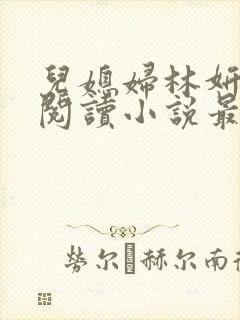 兒媳婦林妍
閱讀小說最
勞尔 赫尔南